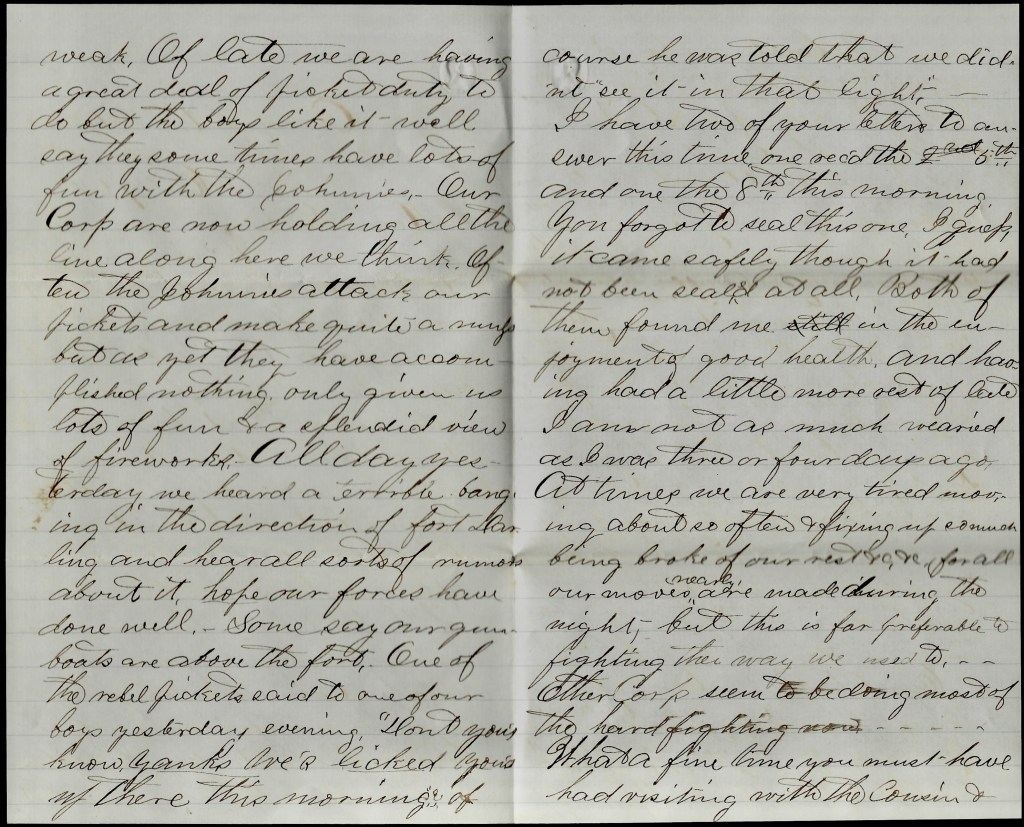 weak. Of late we are having
a great deal of picket duty to
do but the boys like it well
say they some times have lots of
fun with the Johnnies. - Our
Corp are now holding all the
line along here we think. Of
ten the Johnnies attack our
pickets and make quite a
but as yet they have accom-
plished nothing, only given us
lots of fun & a splendid view
of fireworks. All day yes-
terday we heard a terrible bang-
ing in the direction of fort Dar
ling and hear all sorts of rumors
about it, hope our forces have
done well. - Some say our gun-
boats are above the fort. One of
the rebel pickets said to one of our
boys yesterday evening, "Dont you's
know, Yanks We's licked you's
up there this morning" of
course he was told that we did-
nt "see it in that light". -
I have two of your letters to an-
swer this time, one recd the 5th
and one the 8th this morning.
You forgot to seal this one, I guess,
it came safely though it had
not been seal'd at all. Both of
them found me still in the en-
joyment of good health. and hav-
ing had a little more rest of late
I am not as much wearied
as I was three or four days ago.
At times we are very tired mov-
ing about so often & fixing up so much
being broke of our rest &c, &c, for all
our moves nearly are made during the
night, but this is far preferable to
fighting the way we used to. - -
Other Corp seem to be doing most of
the hard fighting now - - - - -
What a fine time you must have
had visiting with the Cousin &